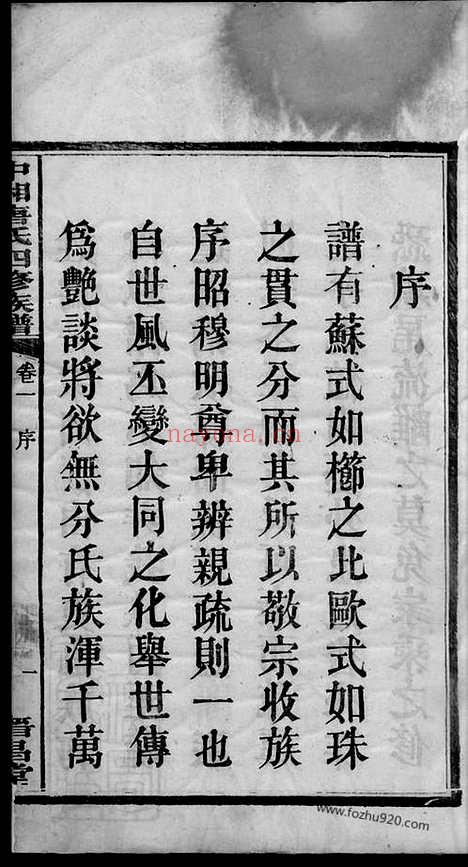 序
譜有蘇式如櫛之比歐式如珠
之貫之分而其所以敬宗收族
序昭穆明尊卑辨親疏則一也
自世風丕變大同之化舉世傳
為艷談將欲無分氏族渾千萬
中湘唐氏四修族譜
卷一
序
一
晋昌堂
nayona.cn
www.fozhu920.com